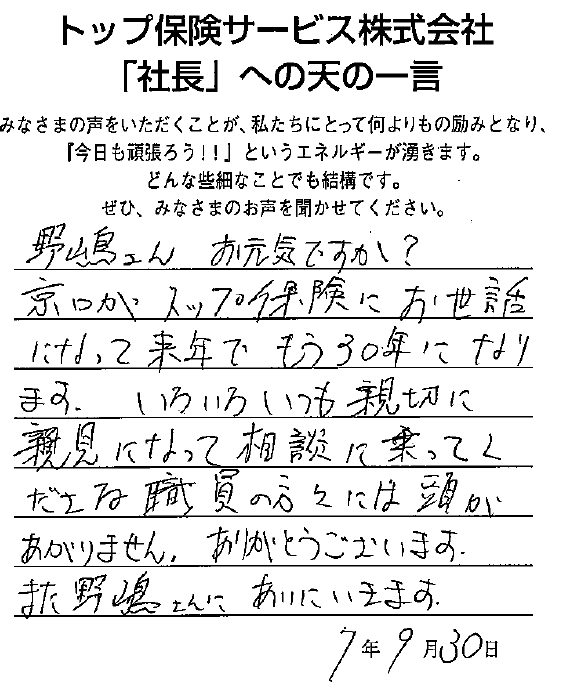 トップ保険サービス株式会社
「社長」への天の一言
みなさまの声をいただくことが、私たちにとって何よりもの励みとなり、
『今日も頑張ろう!!』というエネルギーが湧きます。
どんな些細なことでも結構です。
ぜひ、みなさまのお声を聞かせてください。
野嶋さん お元気ですか?
京口が トップ保険に お世話
になって来年で もう30年になり
ます. いろいろいつも親切に
親見になって相談に乗ってく
ださる職員の方々には頭が
あがりません. ありがとうございます.
また野嶋さんに あいにいきます.
7年9月30日